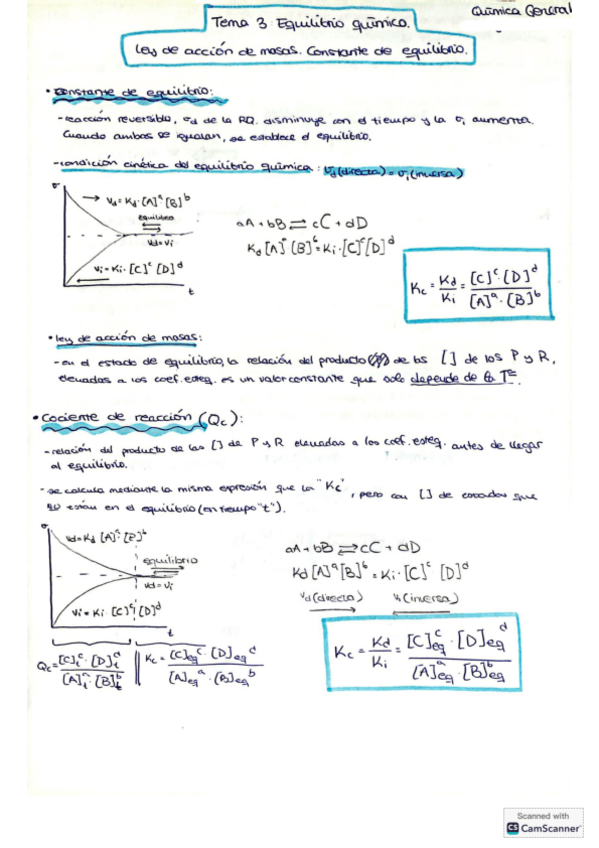 Química General
Tema 3: Equilibrio químico.
Ley de acción de masas. Constante de equilibrio.
• Constante de equilibrio:
-reacción reversible, vd de la RQ. disminuye con el tiempo y la vi aumenta.
Cuando ambas se igualan, se establece el equilibrio.
-condición cinética del equilibrio químico: vd(directa) = vi(inversa)
v
→ Vd = Kd·[A]^a [B]^b
equilibrio
Vd=Vi
Vi = Ki·[C]^c [D]^d
t
aA + bB ⇌ cC + dD
Kd [A]^a [B]^b = Ki·[C]^c [D]^d
Kc = Kd/Ki = [C]^c·[D]^d / [A]^a·[B]^b
• Ley de acción de masas:
-en el estado de equilibrio, la relación del producto de las [ ] de los P y R,
elevadas a los coef. esteq. es un valor constante que solo depende de la Tª.
• Cociente de reacción (Qc):
-relación del producto de las [ ] de P y R elevadas a los coef. esteq. antes de llegar
al equilibrio.
-se calcula mediante la misma expresión que la "Kc", pero con [ ] de que
no están en el equilibrio (en tiempo "t").
v
Vd=Kd [A]^a·[B]^b
equilibrio
Vd=Vi
Vi = Ki·[C]^c [D]^d
t
aA + bB ⇌ cC + dD
Kd [A]^a [B]^b = Ki·[C]^c [D]^d
Vd (directa) Vi (inversa)
Qc = [C]t^c·[D]t^d / [A]t^a·[B]t^b
Kc = [C]eq^c·[D]eq^d / [A]eq^a·[B]eq^b
Kc = Kd/Ki = [C]eq^c·[D]eq^d / [A]eq^a·[B]eq^b
Scanned with
CS CamScanner